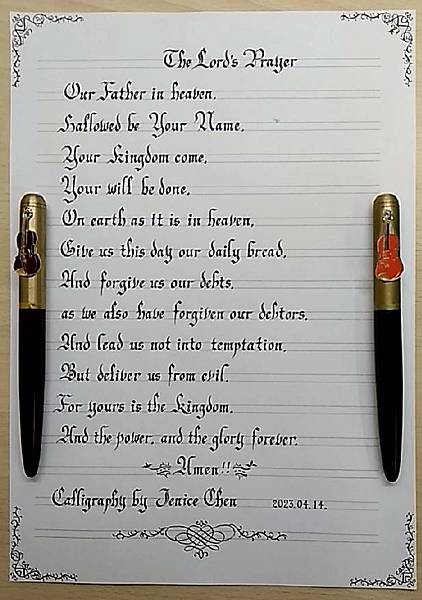 The Lord's Prayer
Our Father in heaven,
Hallowed be Your Name,
Your Kingdom come,
Your will be done,
On earth as it is in heaven,
Give us this day our daily bread,
And forgive us our debts,
as we also have forgiven our debtors,
And lead us not into temptation,
But deliver us from evil.
For yours is the Kingdom,
And the power, and the glory forever.
Amen!!
Calligraphy by Jenice Chen 2023.04.14.